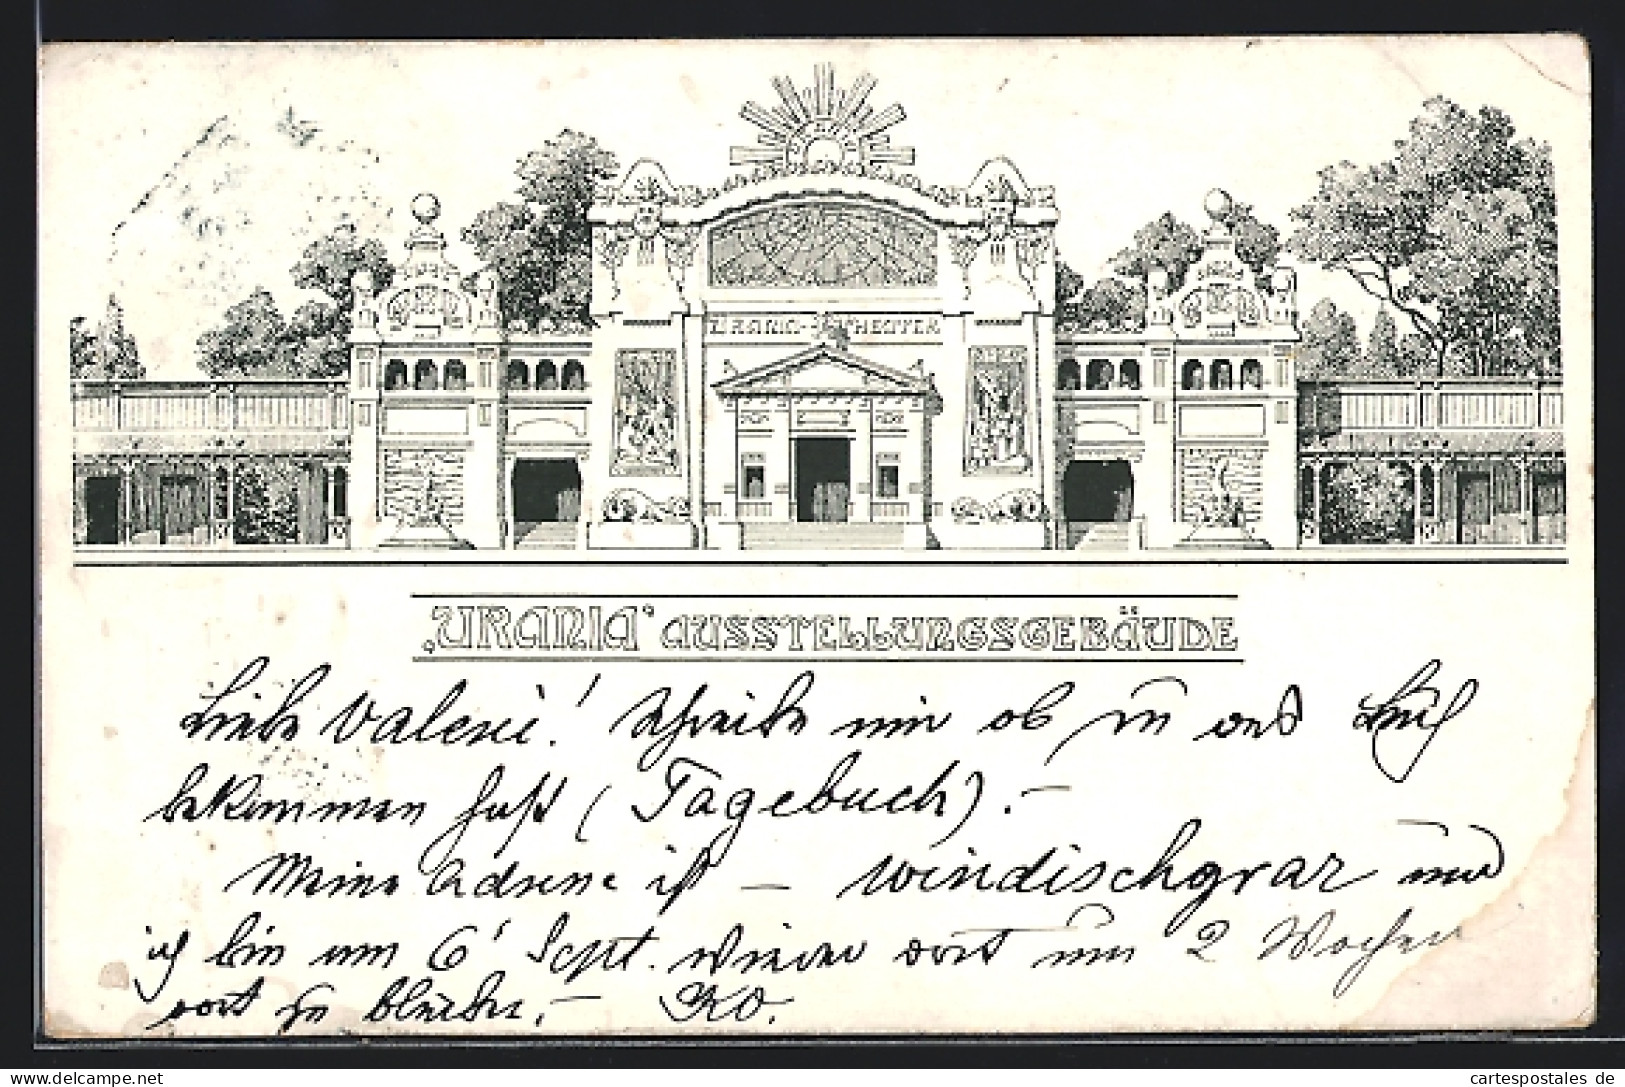 URANIA-THEATER
„URANIA“ AUSSTELLUNGSGEBÄUDE
Liebe Valerie! Schreibe mir ob du das Buch
bekommen hast (Tagebuch). –
Meine Adresse ist – Windischgraz und
ich bin am 6 Sept. wieder dort um 2 Wochen
dort zu bleiben. –
cartespostales de